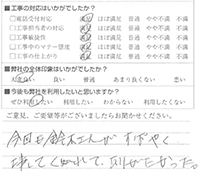 ■工事の対応はいかがでしたか?
□電話受付対応 満足 ほぼ満足 普通 やや不満 不満
□工事担当者の対応 満足 ほぼ満足 普通 やや不満 不満
□工事敏捷性 満足 ほぼ満足 普通 やや不満 不満
□工事中のマナー態度 満足 ほぼ満足 普通 やや不満 不満
□工事の仕上がり 満足 ほぼ満足 普通 やや不満 不満
■弊社の全体印象はいかがでしたか?
良い 普通 あまり良くない 悪い
■今後も弊社を利用したいと思いますか?
ぜひ利用したい 利用したい わからない 利用したくない
ご意見、ご要望等がございましたらお聞かせください。
今回も鈴木さんがすばやく
来てくれて、助かった。